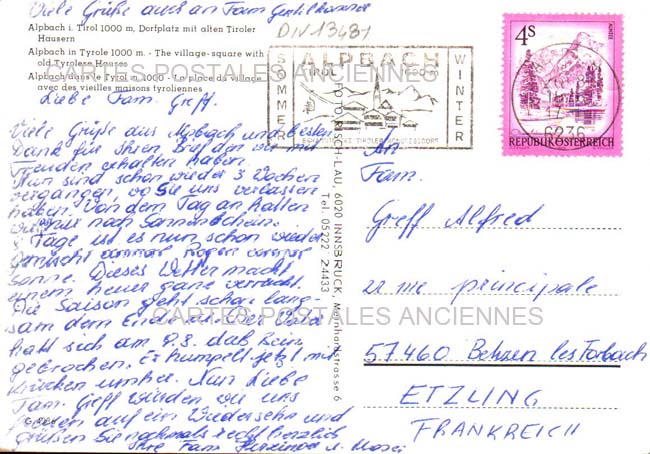 Viele Grüße auch an Fam
Alpbach i. Tirol 1000 m, Dorfplatz mit alten Tiroler
Häusern
Alpbach in Tyrole 1000 m. - The village-square with
old Tyrolese Houses
Alpbach dans le Tyrol m. 1000 - La place du village
avec des vieilles maisons tyroliennes
DIV13431
SOMMER
ALPBACH
TIROL
WINTER
6236
4S
REPUBLIK ÖSTERREICH
CARTES POSTALES ANCIENNES
Liebe Fam. Greff.
Viele Grüße aus Alpbach und besten
Dank für Ihren Brief den wir mit
Freuden erhalten haben.
Nun sind schon wieder 3 Wochen
vergangen, wo Sie uns verlassen
haben. Von dem Tag an hatten
wir nur noch Sonnenschein.
Tage ist es nun schon wieder
gemischt immer Regen immer
Sonne. Dieses Wetter macht
einem heuer ganz verrückt.
Die Saison geht schon lang-
sam dem Ende zu.
hat sich am 9.8. das Bein
gebrochen. Er humpelt jetzt mit
Krücken umher. Nun Liebe
Fam. Greff würden wir uns
freuen auf ein Wiedersehn und
grüßen Sie nochmals recht herzlich
Ihre Fam
6020 INNSBRUCK, Meinhardstrasse 6
Tel. 05222 24433
An
Fam.
Greff Alfred
22 rue principale
57460 Behren les Forbach
ETZLING
FRANKREICH
CARTES POSTALES ANCIENNES